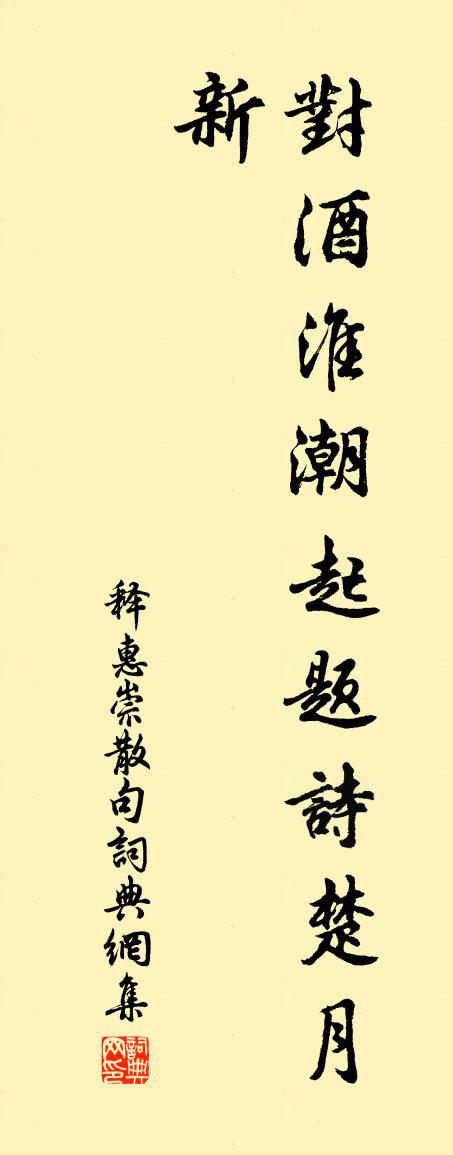 對酒淮潮起題詩楚月
新
释惠崇散句詞典網集
詞典网印